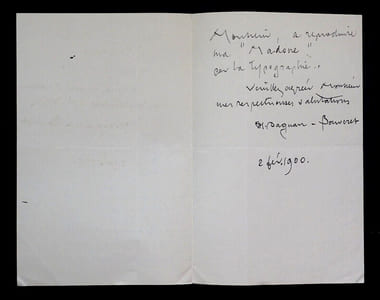 Monsieur, a reproduire
ma "Madone"
par la typographie.
Veuillez agréer Monsieur
mes respectueuses salutations
Dagnan-Bouveret
2 fév. 1900.